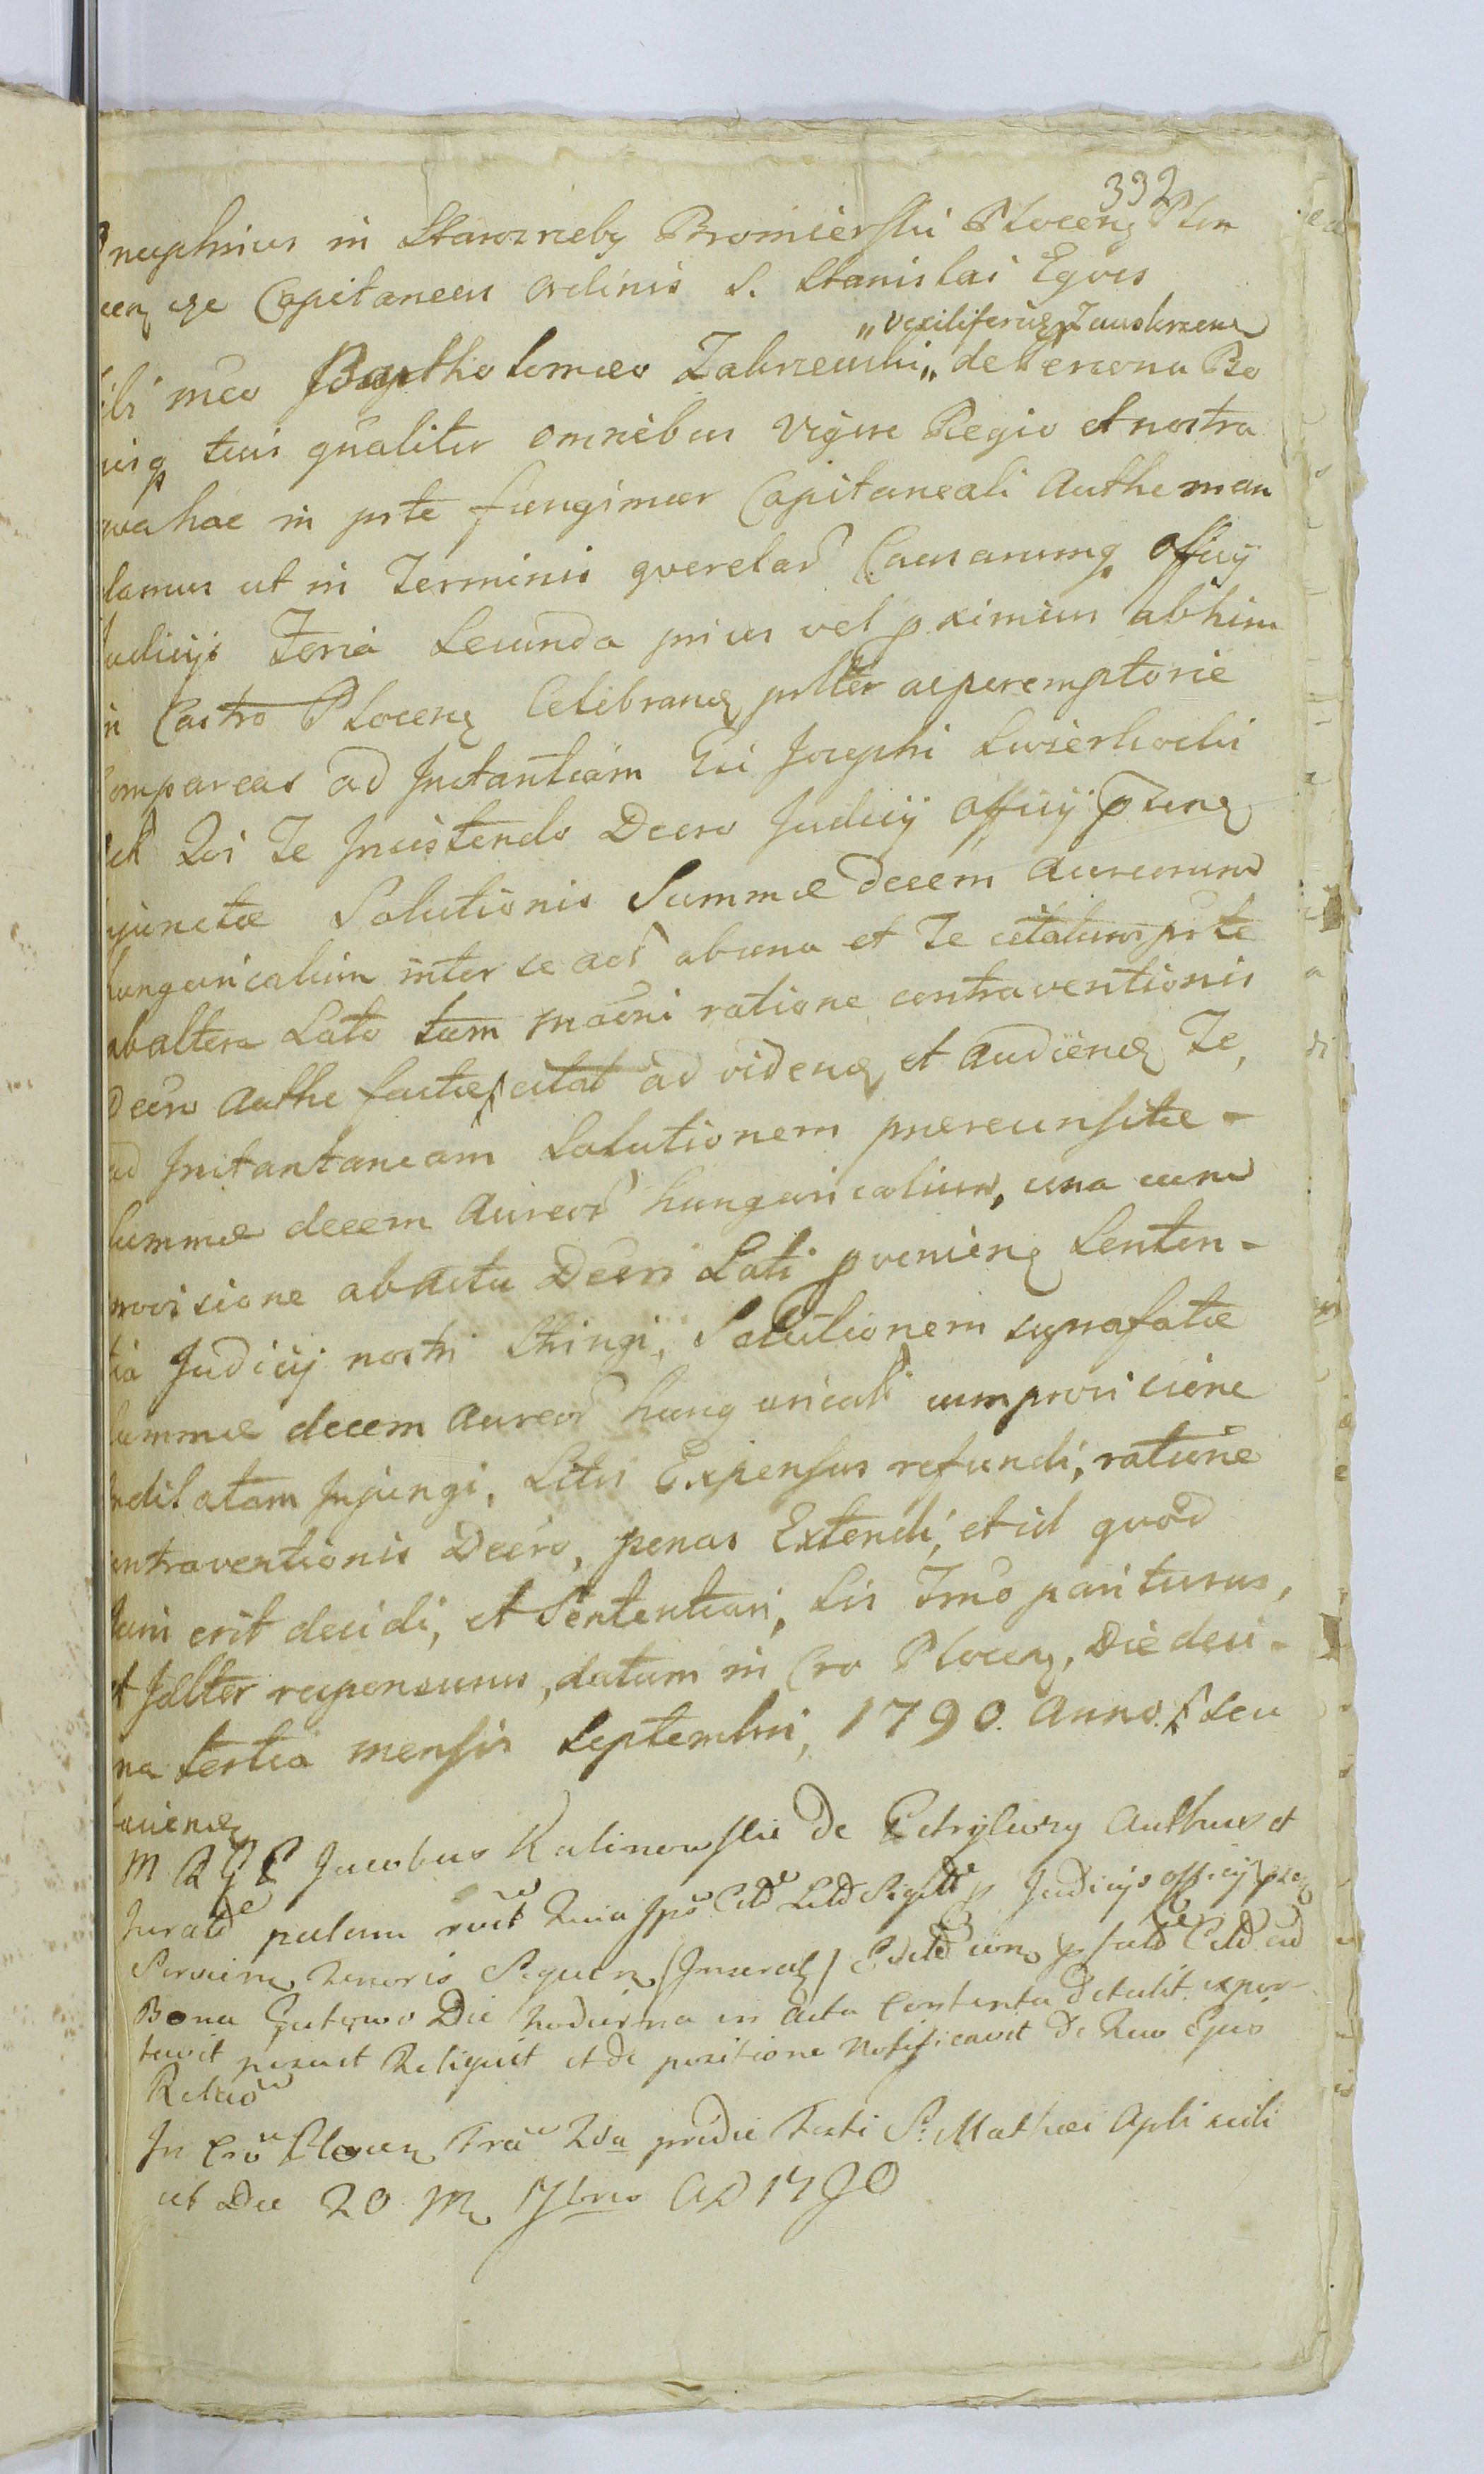 392
nuphrius in Staroźreby Bromierski Plocen Plon
cen qe Capitaneus ordinis S. Stanislai Eqves
"Vexiliferus Zauskrzen
ibi mco Bartholomæo Zakrzewski „ de Persona Bo
isq tuis qualiter omnibus Vigore Regio et nostra
qva hac in prte fungimur Capitaneali Authe man
damus ut in Terminis qverelar Causarumq officij
Judicijs Feria Secunda prius vel pximius abhinc
in Castro Plocen Celebrand prlter ac peremptorie
Compareas ad Instantiam Gsi Josephi Swierkocki
Qui Te Insistendo Decro Judicij officij
njunctæ Solutionis Summæ decem aureorum
hungaricalium inter se act ab una et Te citatum prte
ab altera Lato tum maõni ratione contraventionis
Decro Authe factæ, citat ad videnq et audienq Te,
ad Instantaneam Solutionem prærecensitæ -
Summæ decem Aureor hungaricalium, una cum
provisione ab actu Decri Lati pvenien Senten-
tia Judicij nostri Stringi, Solutionem suprafatæ
Summæ decem Aureor hungarical cum provisione
ndilatam Injungi, Litis Expensas refundi, ratione
ontraventionis Decro, penas Extendi, et id quod
Juris erit decidi, et Sententiari, Sis Trno pariturus,
et Jcllter responsurus, datum in Cro Plocen, Die deci-
ma tertia mensis Septembri, 1790. Anno. Seu
quend
M Jacobus Kalinowski De Authus et
Jurat palam rcvit Quia Ipse Citt Litt Sigill p Judicijs officij
Seruien tenoris Sequen (Inseral) Citt ad
Bona Gutowo Die hodierna in acta Contenta detulit expor-
tavit posuit Reliquit et de positione Notificavit De Quo Ejus
Relaõ
In Crõ Plocen Fria 2da pridie Festi Sti Mathæi Apli scili
cet Die 20 M 7bris AD 1790